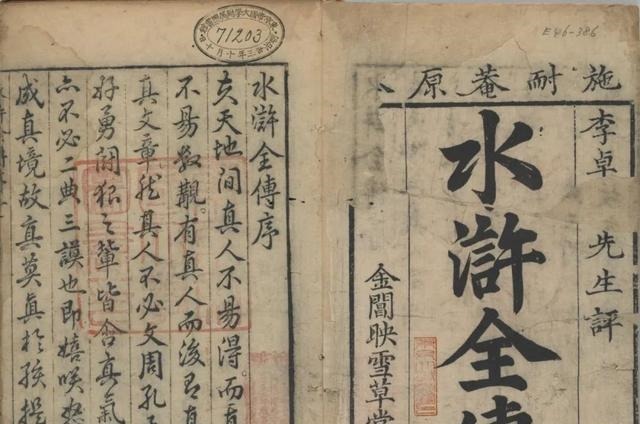 E46-386
71203
施耐菴原
李卓
先生評
水滸全傳
金閶映雪草堂
水滸全傳序
夫天地間真人不易得而真
不易數觀有真人而後有真
真文章然其人不必文周孔
好勇鬪狠之輩皆含真氣
亦不必二典三謨也即嬉咲怒
成真境故真莫真於孩提